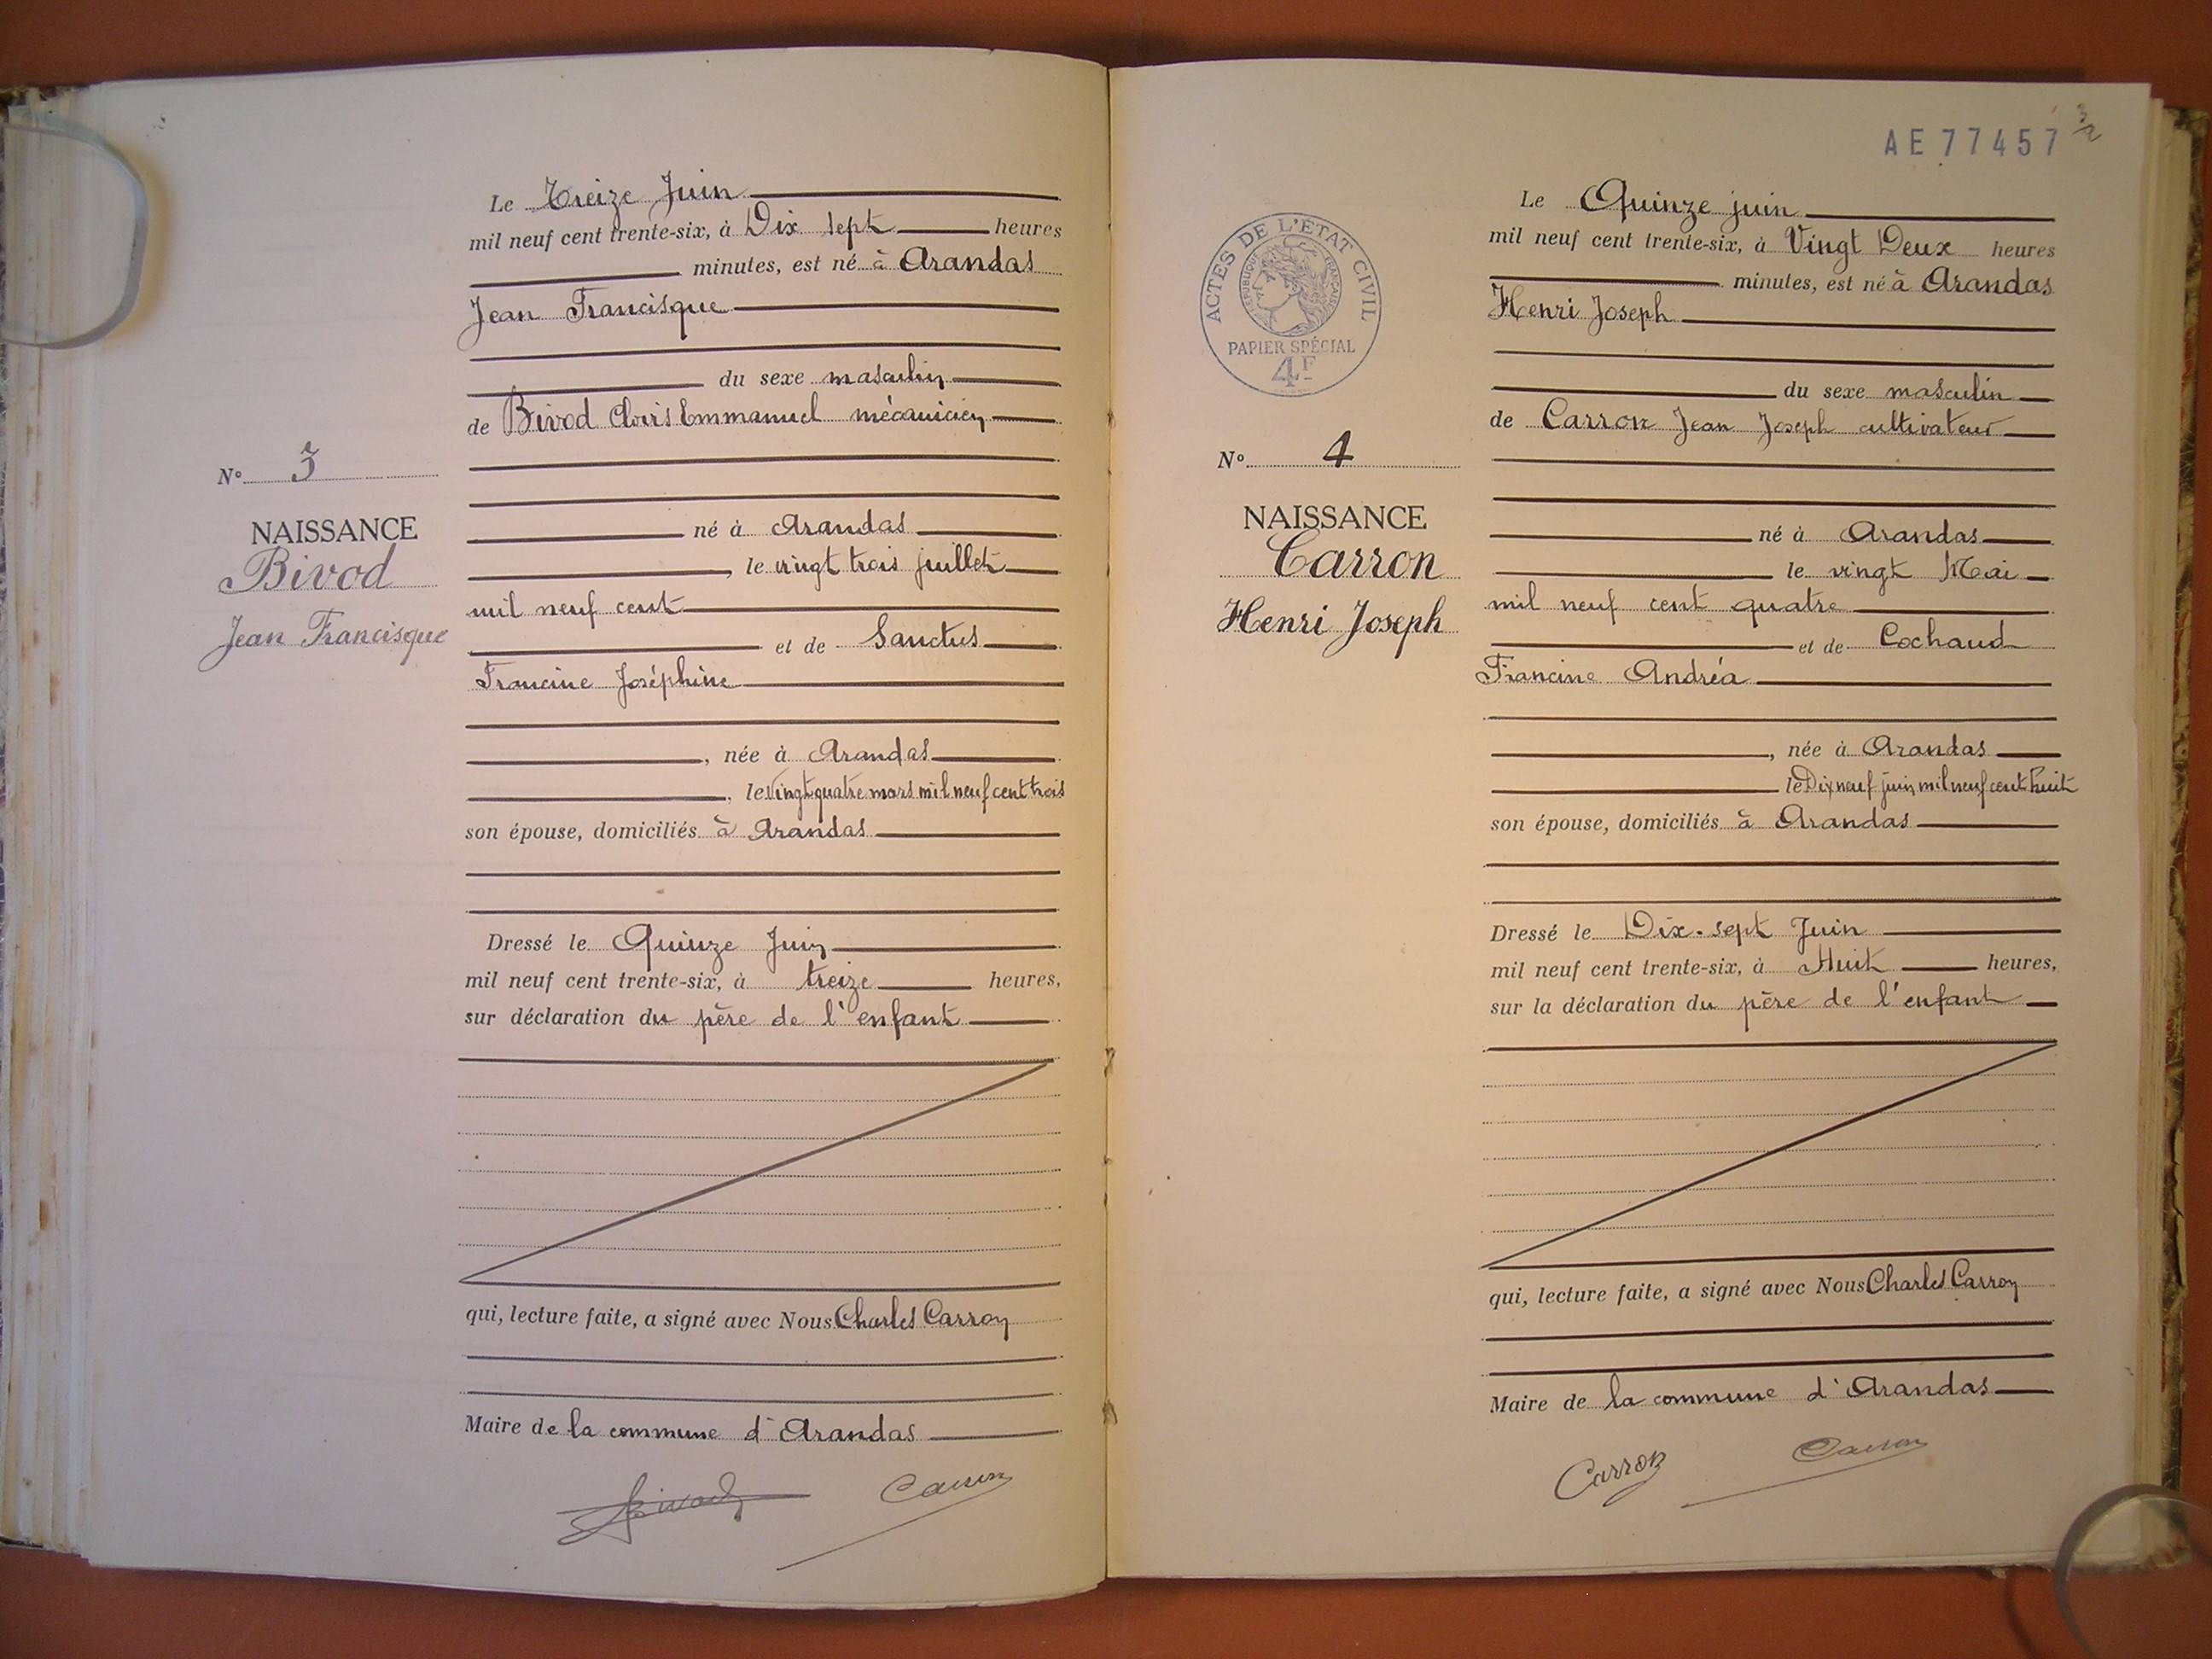 Le Treize Juin
mil neuf cent trente-six, à Dix sept heures
minutes, est né à Arandas
Jean Francisque
du sexe masculin
de Bivod Clovis Emmanuel mécanicien
N° 3
NAISSANCE
Bivod
Jean Francisque
né à Arandas
, le vingt trois juillet
mil neuf cent
et de Sanctus
Francine Joséphine
, née à Arandas
, le Vingt quatre mars mil neuf cent trois
son épouse, domiciliés à Arandas
Dressé le Quinze Juin
mil neuf cent trente-six, à treize heures,
sur déclaration du père de l'enfant
qui, lecture faite, a signé avec Nous Charles Carron
Maire de la commune d'Arandas
Bivod Carron
AE 77457
3/2
ACTES DE L'ÉTAT CIVIL
RÉPUBLIQUE FRANÇAISE
PAPIER SPÉCIAL
4F
Le Quinze juin
mil neuf cent trente-six, à Vingt Deux heures
minutes, est né à Arandas
Henri Joseph
du sexe masculin
de Carron Jean Joseph cultivateur
N° 4
NAISSANCE
Carron
Henri Joseph
né à Arandas
le vingt Mai
mil neuf cent quatre
et de Cochaud
Francine Andréa
, née à Arandas
le Dix neuf juin mil neuf cent huit
son épouse, domiciliés à Arandas
Dressé le Dix-sept Juin
mil neuf cent trente-six, à Huit heures,
sur la déclaration du père de l'enfant
qui, lecture faite, a signé avec Nous Charles Carron
Maire de la commune d'Arandas
Carron Carron